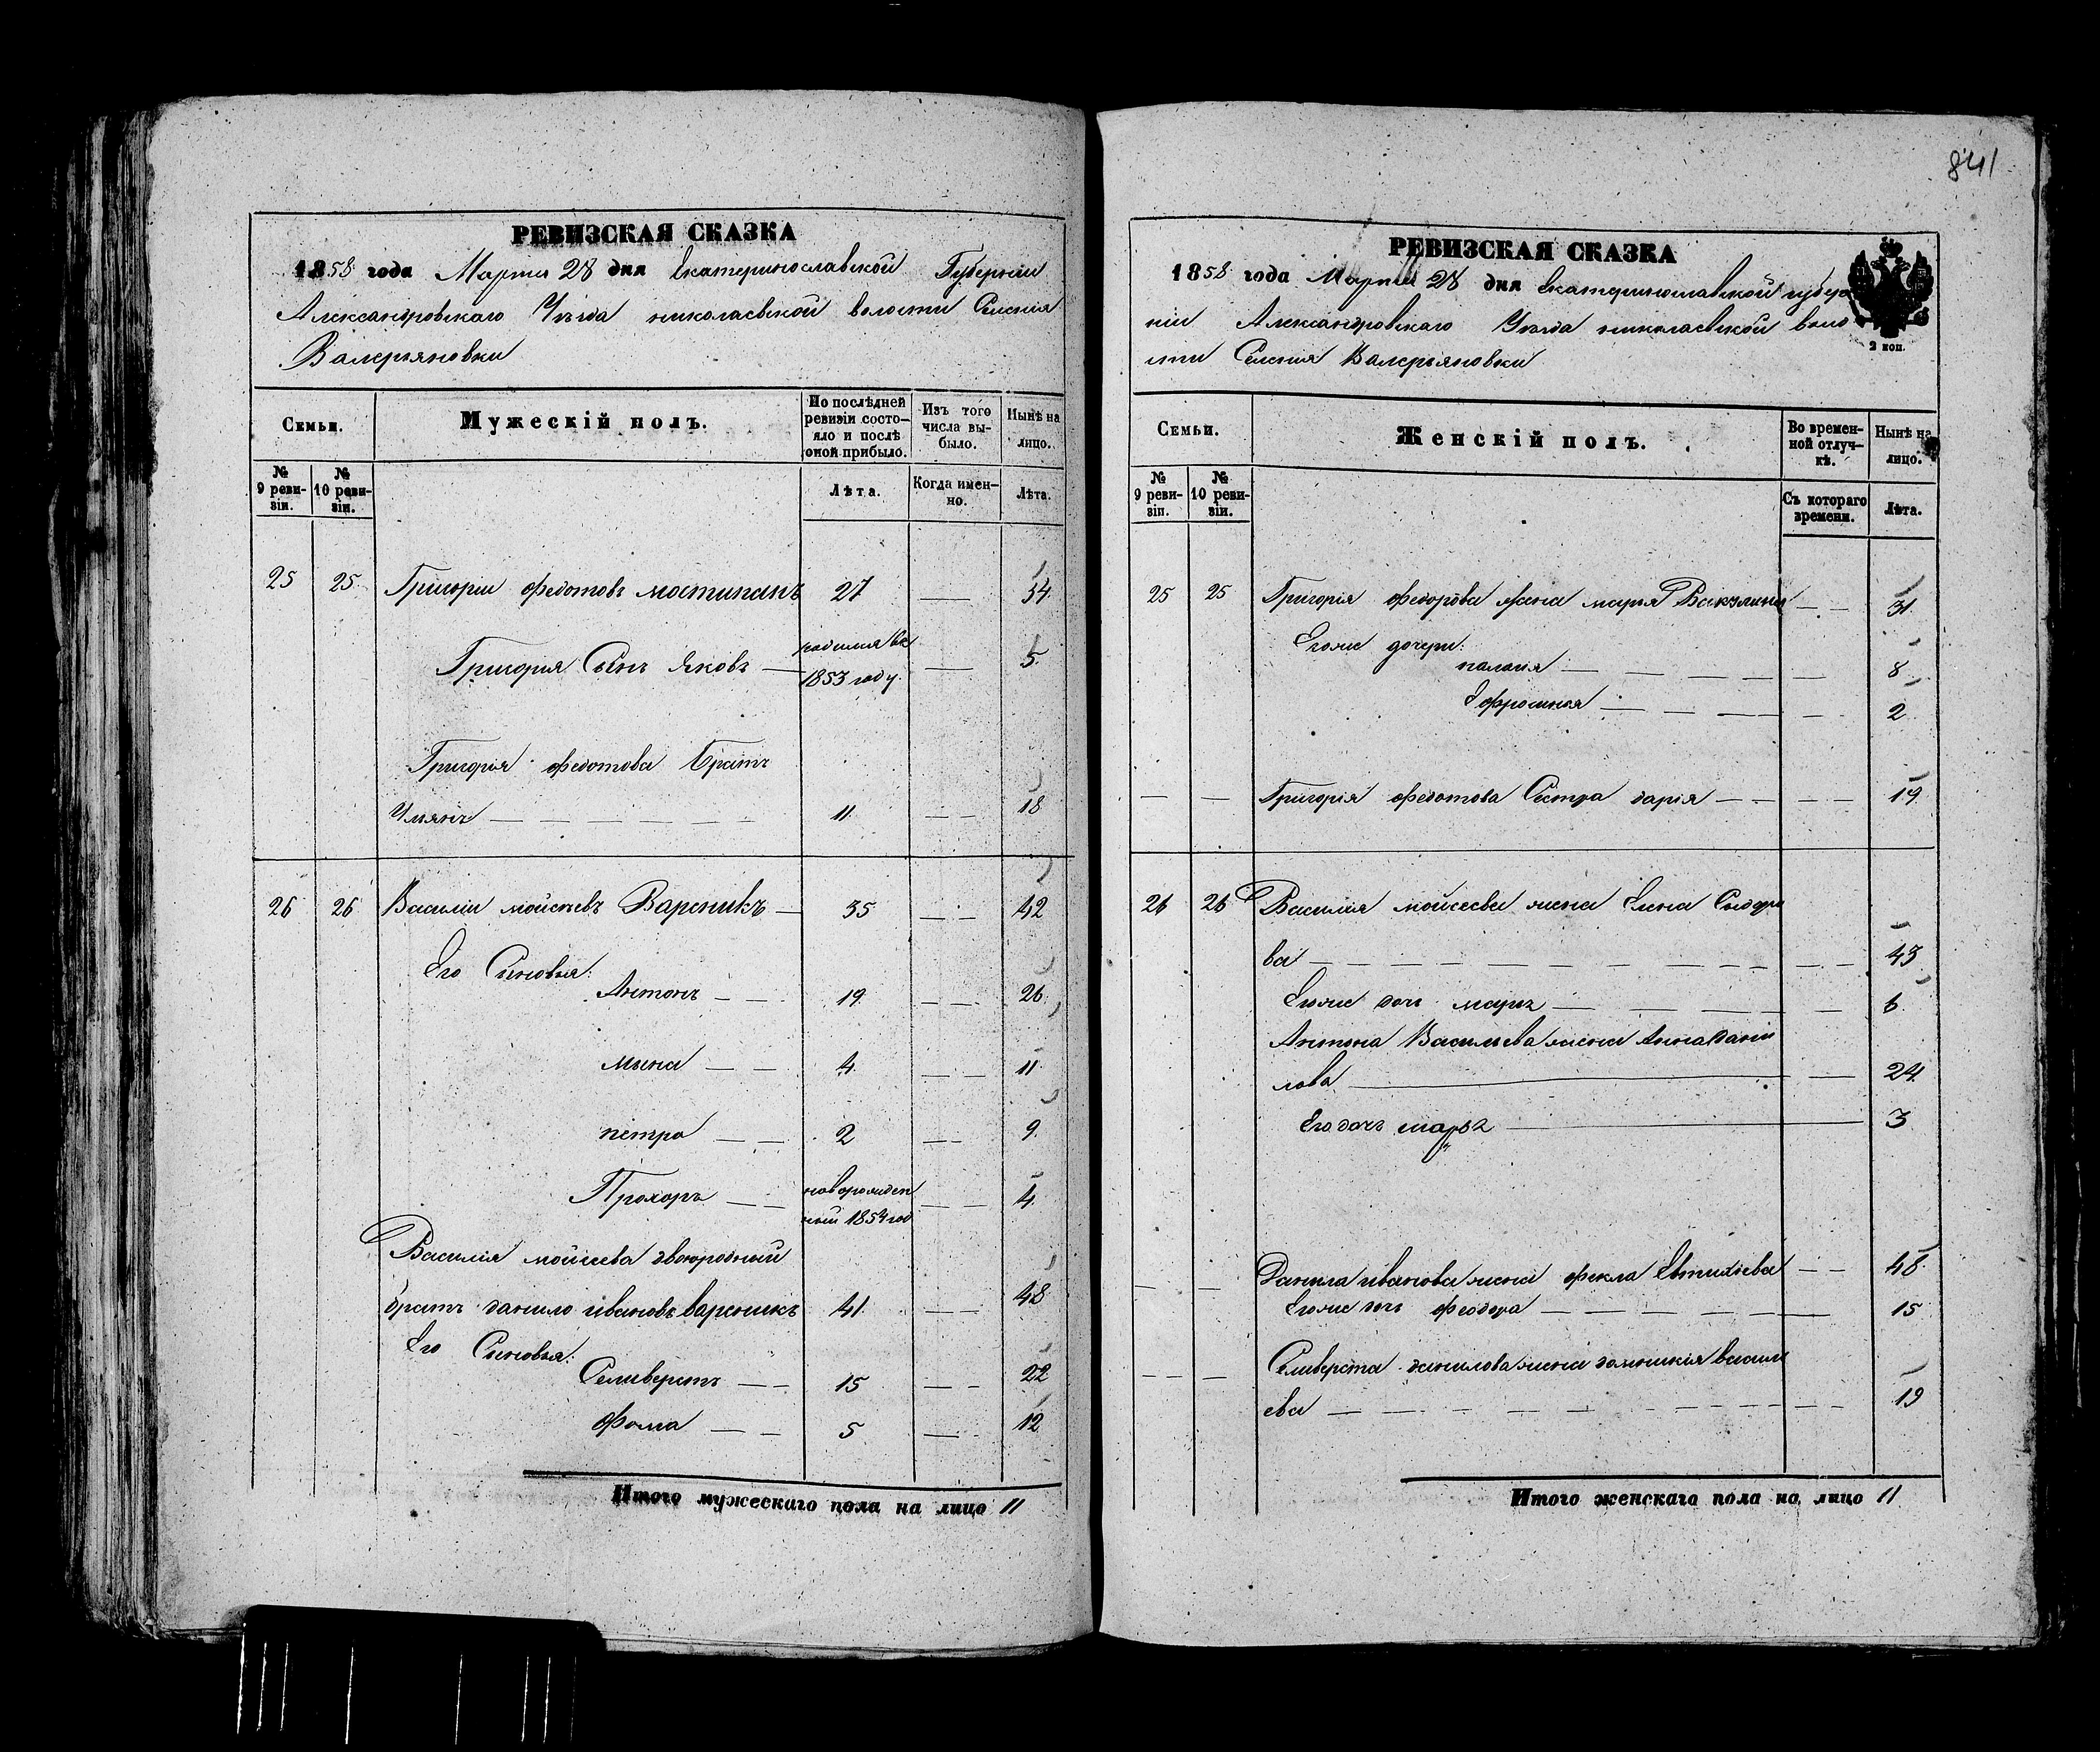 841
РЕВИЗСКАЯ СКАЗКА
1858 года Марта 28 дня Екатеринославской Губернии
Александровскаго Уѣзда николаевской волости Селения
Валерьяновки
Семьи.
Мужескій полъ.
По послѣдней ревизіи состо-
яло и послѣ оной прибыло.
Изъ того числа вы-
было.
Нынѣ на лицо.
№ 9 реви-
зіи.
№ 10 реви-
зіи.
Лѣта.
Когда имен-
но.
Лѣта.
25 25 Григории федотовъ мостипанъ 27 — 34
Григория Сынъ Яковъ — родился въ 1853 году — 5
Григорья федотова братъ
Ульянъ — 11 — 18
26 26 Василии мойсеевъ Вареникъ — 35 — 42
Его Сыновья:
Антонъ — 19 — 26
мына — 4 — 11
петро — 2 — 9
Прохоръ — новорожден
ный 1854 год — 4
Василия мойсеева двоюродный
братъ данило ивановъ вареникъ 41 — 48
Его Сыновья:
Селиверстъ — 15 — 22
Фома — 5 — 12
Итого мужескаго пола на лицо 11
РЕВИЗСКАЯ СКАЗКА
1858 года Марта 28 дня Екатеринославской губер
нии Александровскаго Уѣзда николаевской воло
сти Селения Валерьяновки
2 коп.
Семьи.
Женскій полъ.
Во времен-
ной отлуч-
кѣ.
Нынѣ на лицо.
№ 9 реви-
зіи.
№ 10 реви-
зіи.
Съ котораго времени.
Лѣта.
25 25 Григорія федорова жена марья — 31
Егоже дочери:
палагія — 8
Ефросинья — 2
— — Григорія федотова Сестра дарія — 19
26 26 Василия мойсеева жена Елена Сыдоро
ва — 43
Егоже дочь — 6
Антона Васильева жена Анна Дани
лова — 24
Его дочь — 3
— — Данила иванова жена фекла Евтихіева — 48
Егоже дочь феодора — 15
— — Селиверста данилова жена васили
ева — 19
Итого женскаго пола на лицо 11